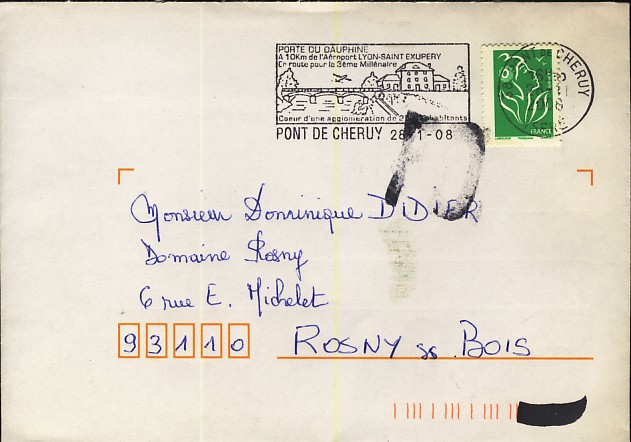 PORTE DU DAUPHINE
A 10Km de l'Aéroport LYON-SAINT EXUPERY
En route pour le 3ème Millénaire
Coeur d'une agglomération de habitants
PONT DE CHERUY 28-1-08
DE CHERUY
FRANCE
Monsieur Dominique DIDIER
Domaine Rosny
6 rue E. Michelet
93110 ROSNY ss BOIS